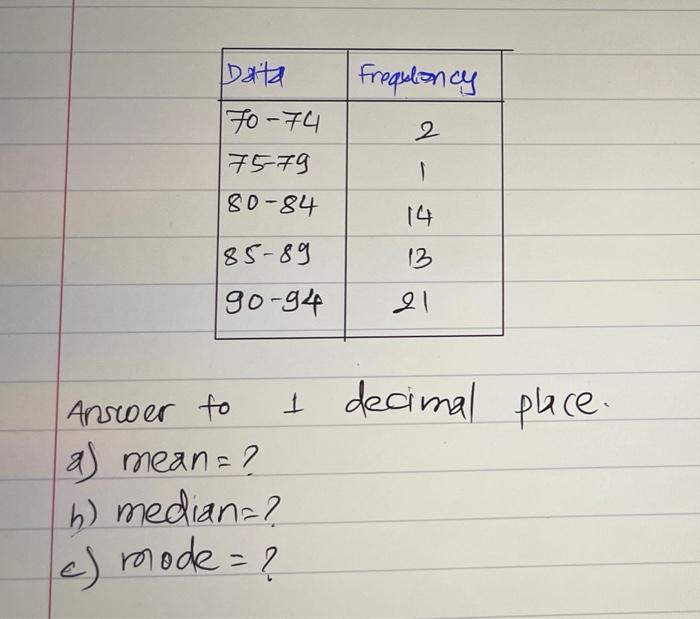 Data Frequency
70-74 2
75-79 1
80-84 14
85-89 13
90-94 21
Answer to 1 decimal place.
a) mean=?
b) median=?
c) mode=?